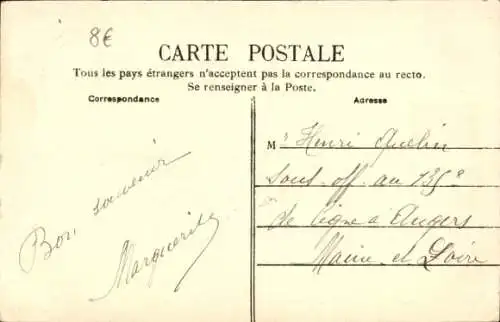 8€
CARTE POSTALE
Tous les pays étrangers n'acceptent pas la correspondance au recto.
Se renseigner à la Poste.
Correspondance
Adresse
Bon souvenir
Marguerite
Mr Henri Quelin
sous off au 135e
de ligne à Angers
Maine et Loire